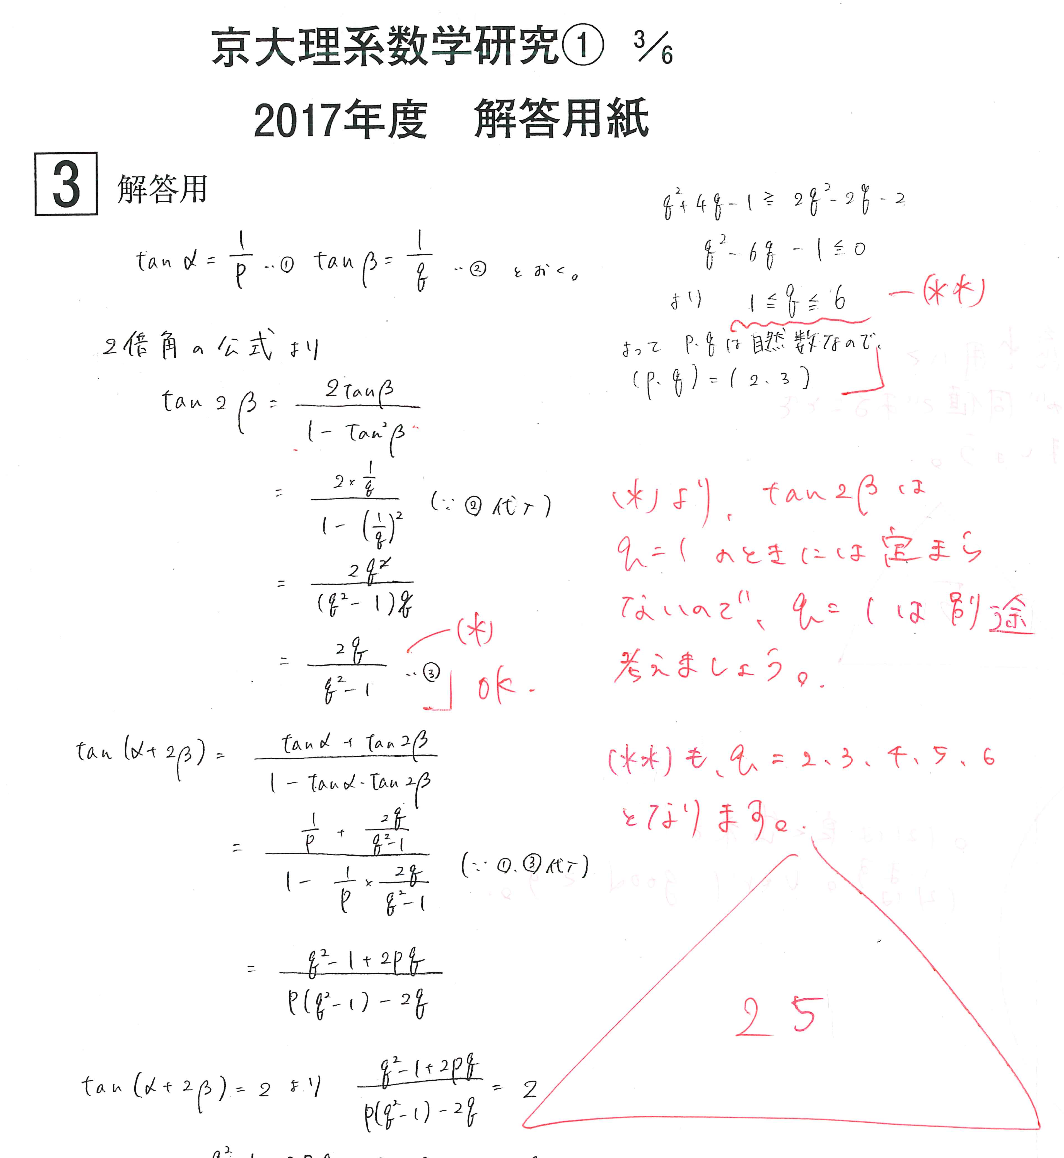 京大理系数学研究① 3/6
2017年度 解答用紙
3 解答用
tan α = 1/p …① tan β = 1/q …② とおく。
2倍角の公式より
tan 2β = 2tanβ / (1 - tan²β)
= (2×1/q) / (1 - (1/q)²) (∵②代入)
= 2q² / (q² - 1)q
= 2q / (q² - 1) …③
(*)
OK.
tan(α+2β) = (tanα + tan2β) / (1 - tanα·tan2β)
= (1/p + 2q/(q²-1)) / (1 - 1/p × 2q/(q²-1)) (∵①.③代入)
= (q² - 1 + 2pq) / (p(q²-1) - 2q)
tan(α+2β) = 2 より (q²-1+2pq) / (p(q²-1) - 2q) = 2
q²+4q-1 ≧ 2q²-2q-2
q²-6q-1≦0
より 1≦q≦6 (**)
よって p.qは自然数なので、
(p.q)=(2.3)
(*)より、tan2βは
q=1のときには定まら
ないので、q=1は別途
考えましょう。
(**)も、q=2、3、4、5、6
となります。
25